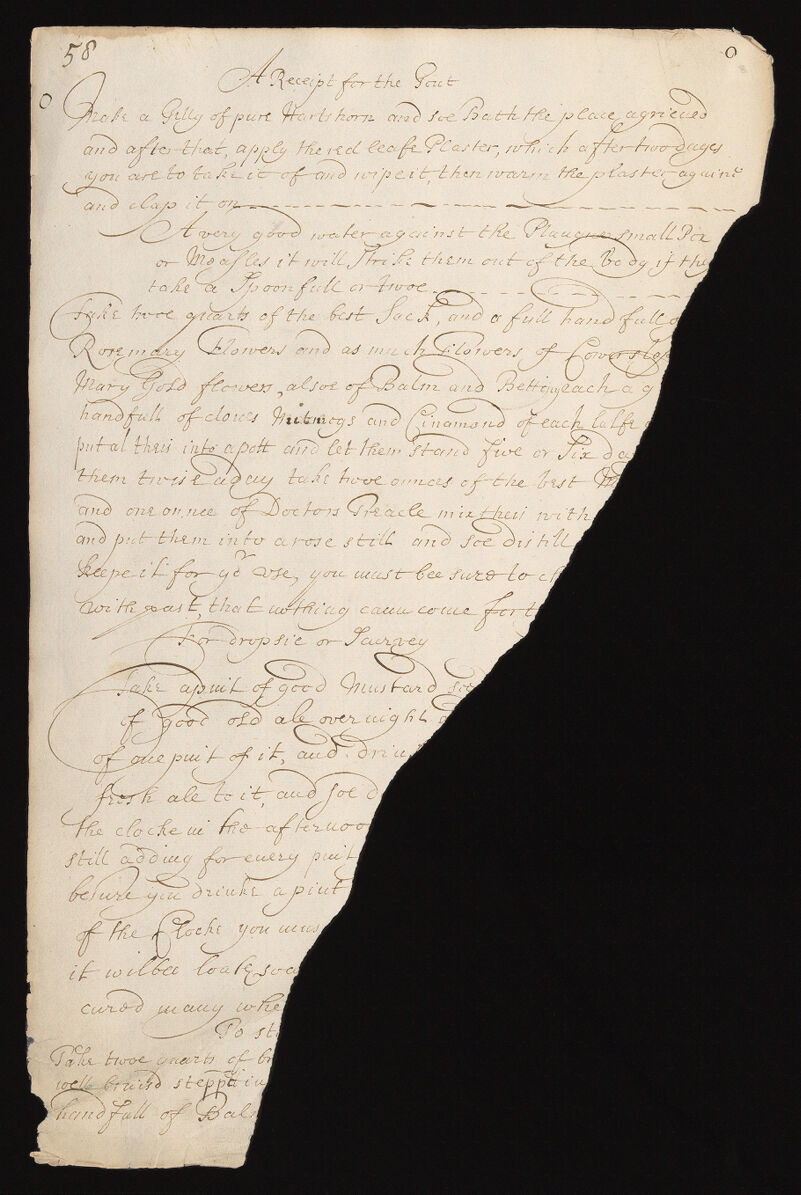 58
A Receipt for the Gout
Make a Gelly of pure Hartshorn and soe Bath the place agrieved
and after that, apply the red leafe Plaster, which after two dayes
you are to take it of and wipe it, then warm the plaster againe
and clap it on
A very good water against the Plauge small Pox
or Measles it will strike them out of the Body if the
take a Spoonfull or twoe
take twoe quarts of the best Sack, and a full hand full o
Rosemary Flowers and as much Flowers of Cowersle
Mary Gold flowers, alsoe of Balm and Bettiny each a g
handfull of cloves Nutmogs and Cinamond of each halfe
put al theis into a pott and let them stand five or Six da
them twise a day take twoe ounces of the best M
and one ounce of Doctors Treacle mix theis with
and put them into a rose still and soe distill
keepe it for yor vse, you must bee sure to
with past, that nothing cann come fort
For dropsie or Scurvey
Take a pint of good Mustard see
of good old ale over night
of one pint of it, and drin
fresh ale to it, and soe d
the clocke in the afternoo
still adding for every pint
besure you drinke a pint
of the Clocke you mus
it wilbee soa
cured many whe
To st
Take twoe quarts of br
well bruisd in
handfull of Balm